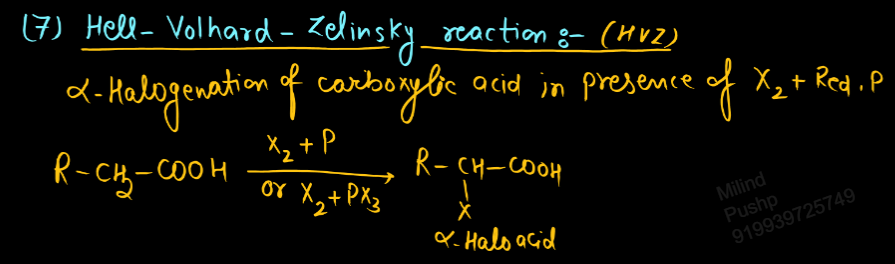 (7) Hell-Volhard-Zelinsky reaction :- (HVZ)
α-Halogenation of carboxylic acid in presence of X₂ + Red.P
R-CH₂-COOH X₂ + P or X₂ + PX₃ → R-CH-COOH
X
α-Halo acid
Milind
Pushp
919939725749